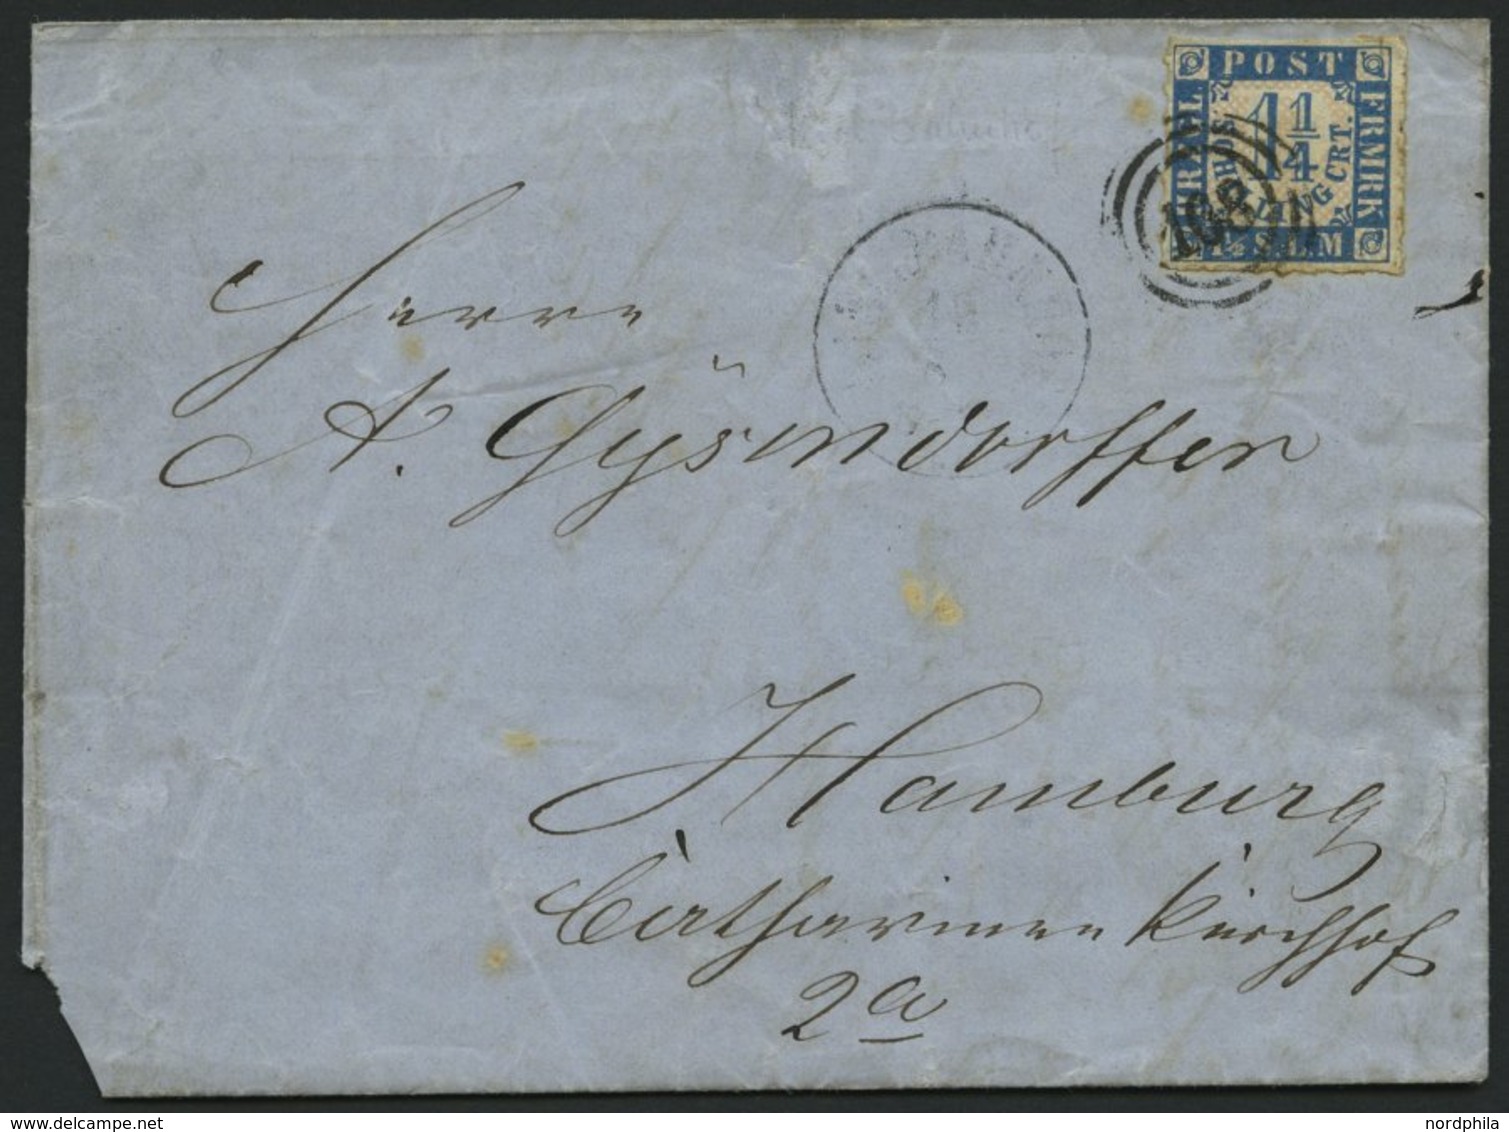 POST
FRMRK
1 1/4
CRT.
S.L.M
108
Herrn
A. Gÿsendorffer
Hamburg
Catharinen Kirchhof
2a
nordphila